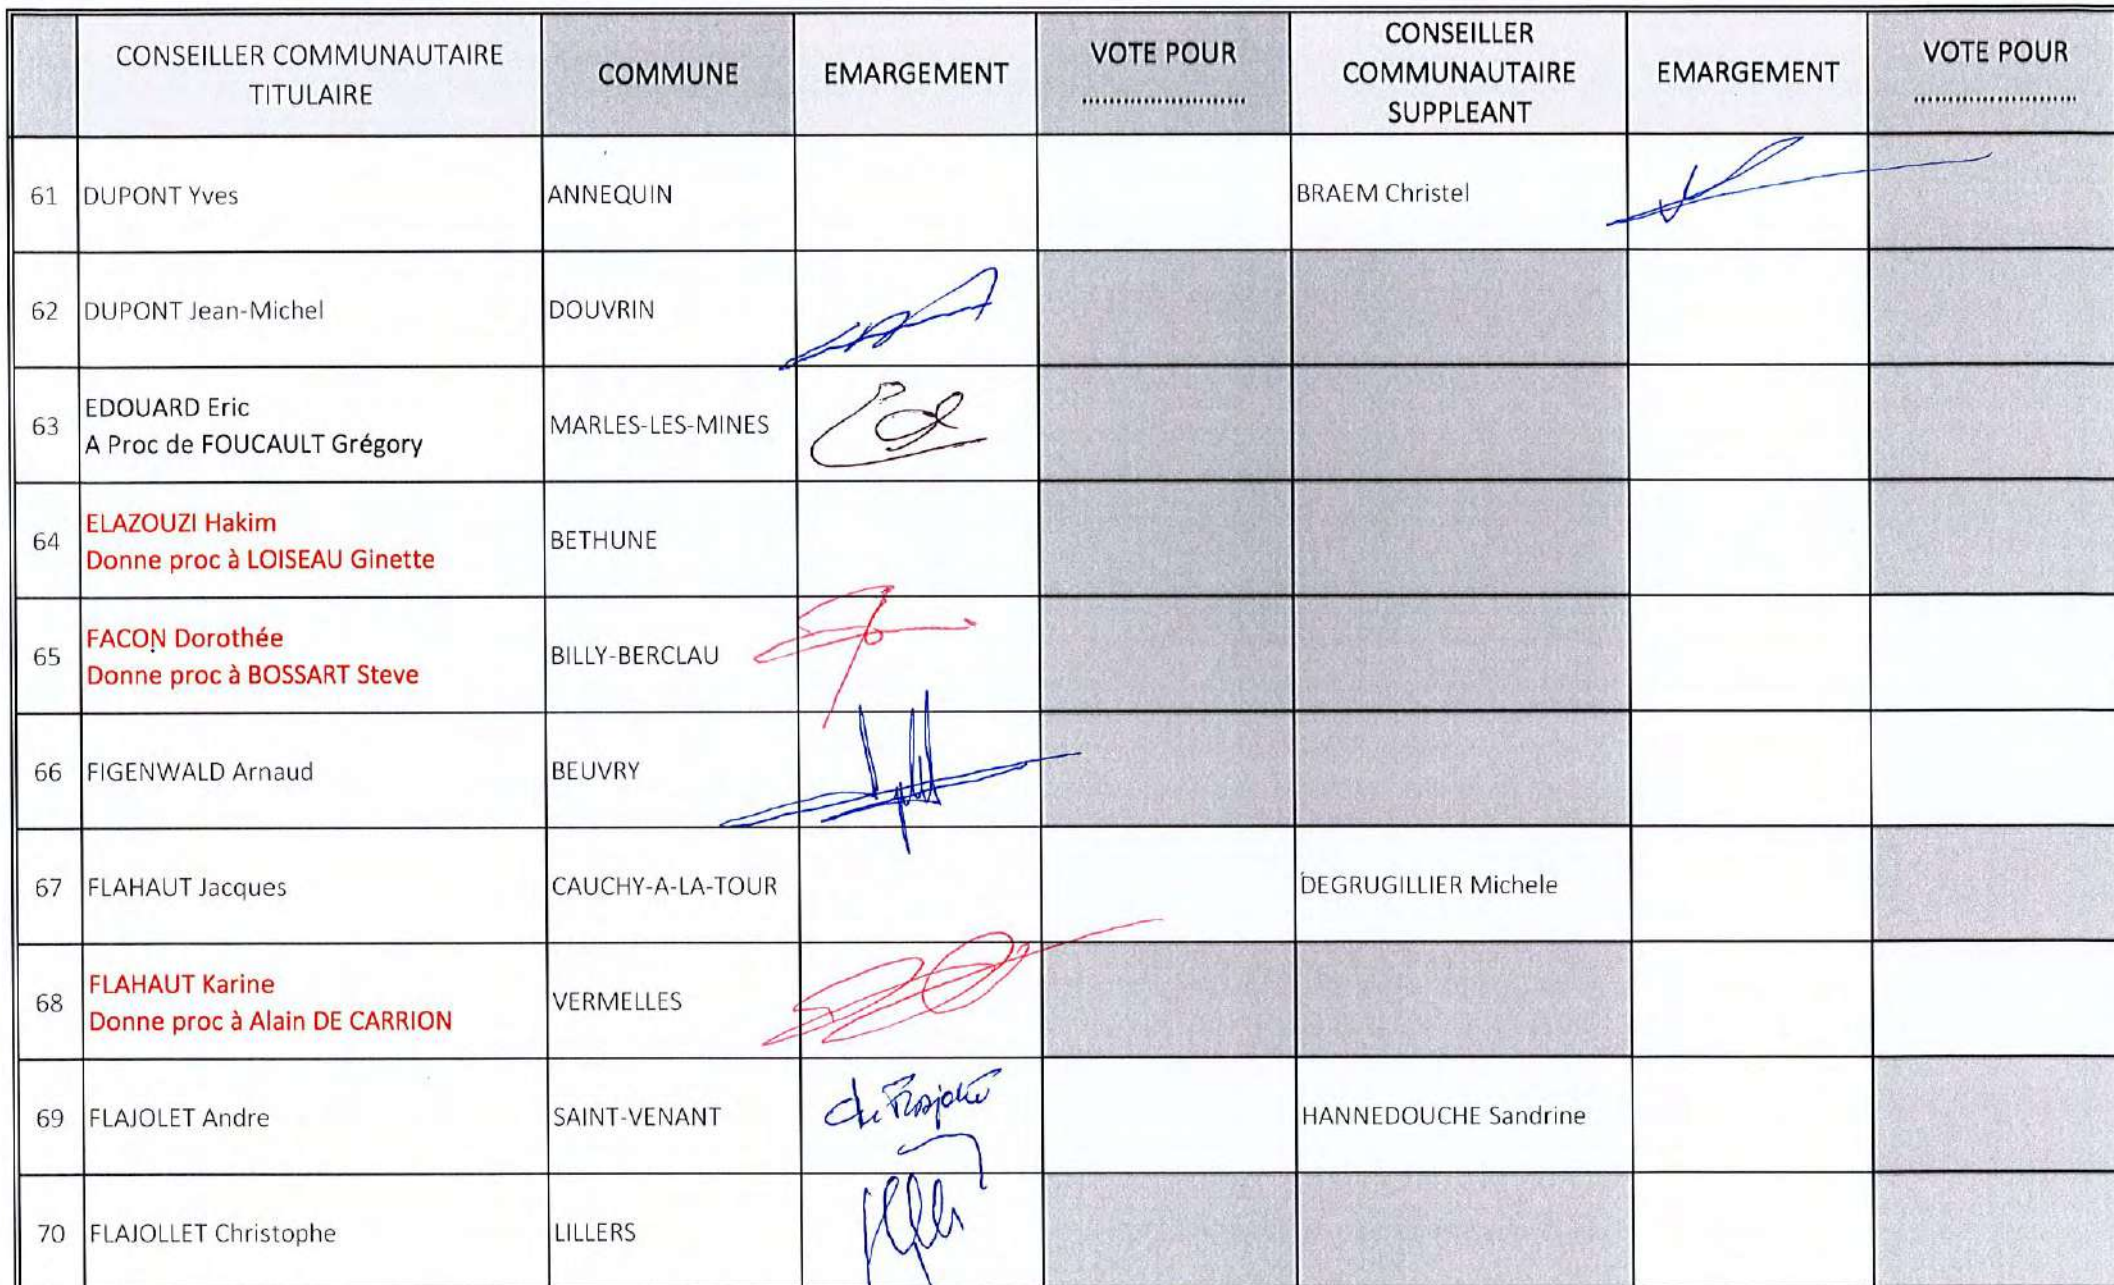 CONSEILLER COMMUNAUTAIRE
TITULAIRE
COMMUNE
EMARGEMENT
VOTE POUR
........................
CONSEILLER
COMMUNAUTAIRE
SUPPLEANT
EMARGEMENT
VOTE POUR
........................
61 DUPONT Yves ANNEQUIN BRAEM Christel
62 DUPONT Jean-Michel DOUVRIN
63 EDOUARD Eric
A Proc de FOUCAULT Grégory
MARLES-LES-MINES
64 ELAZOUZI Hakim
Donne proc à LOISEAU Ginette
BETHUNE
65 FACON Dorothée
Donne proc à BOSSART Steve
BILLY-BERCLAU
66 FIGENWALD Arnaud BEUVRY
67 FLAHAUT Jacques CAUCHY-A-LA-TOUR DEGRUGILLIER Michele
68 FLAHAUT Karine
Donne proc à Alain DE CARRION
VERMELLES
69 FLAJOLET Andre SAINT-VENANT HANNEDOUCHE Sandrine
70 FLAJOLLET Christophe LILLERS